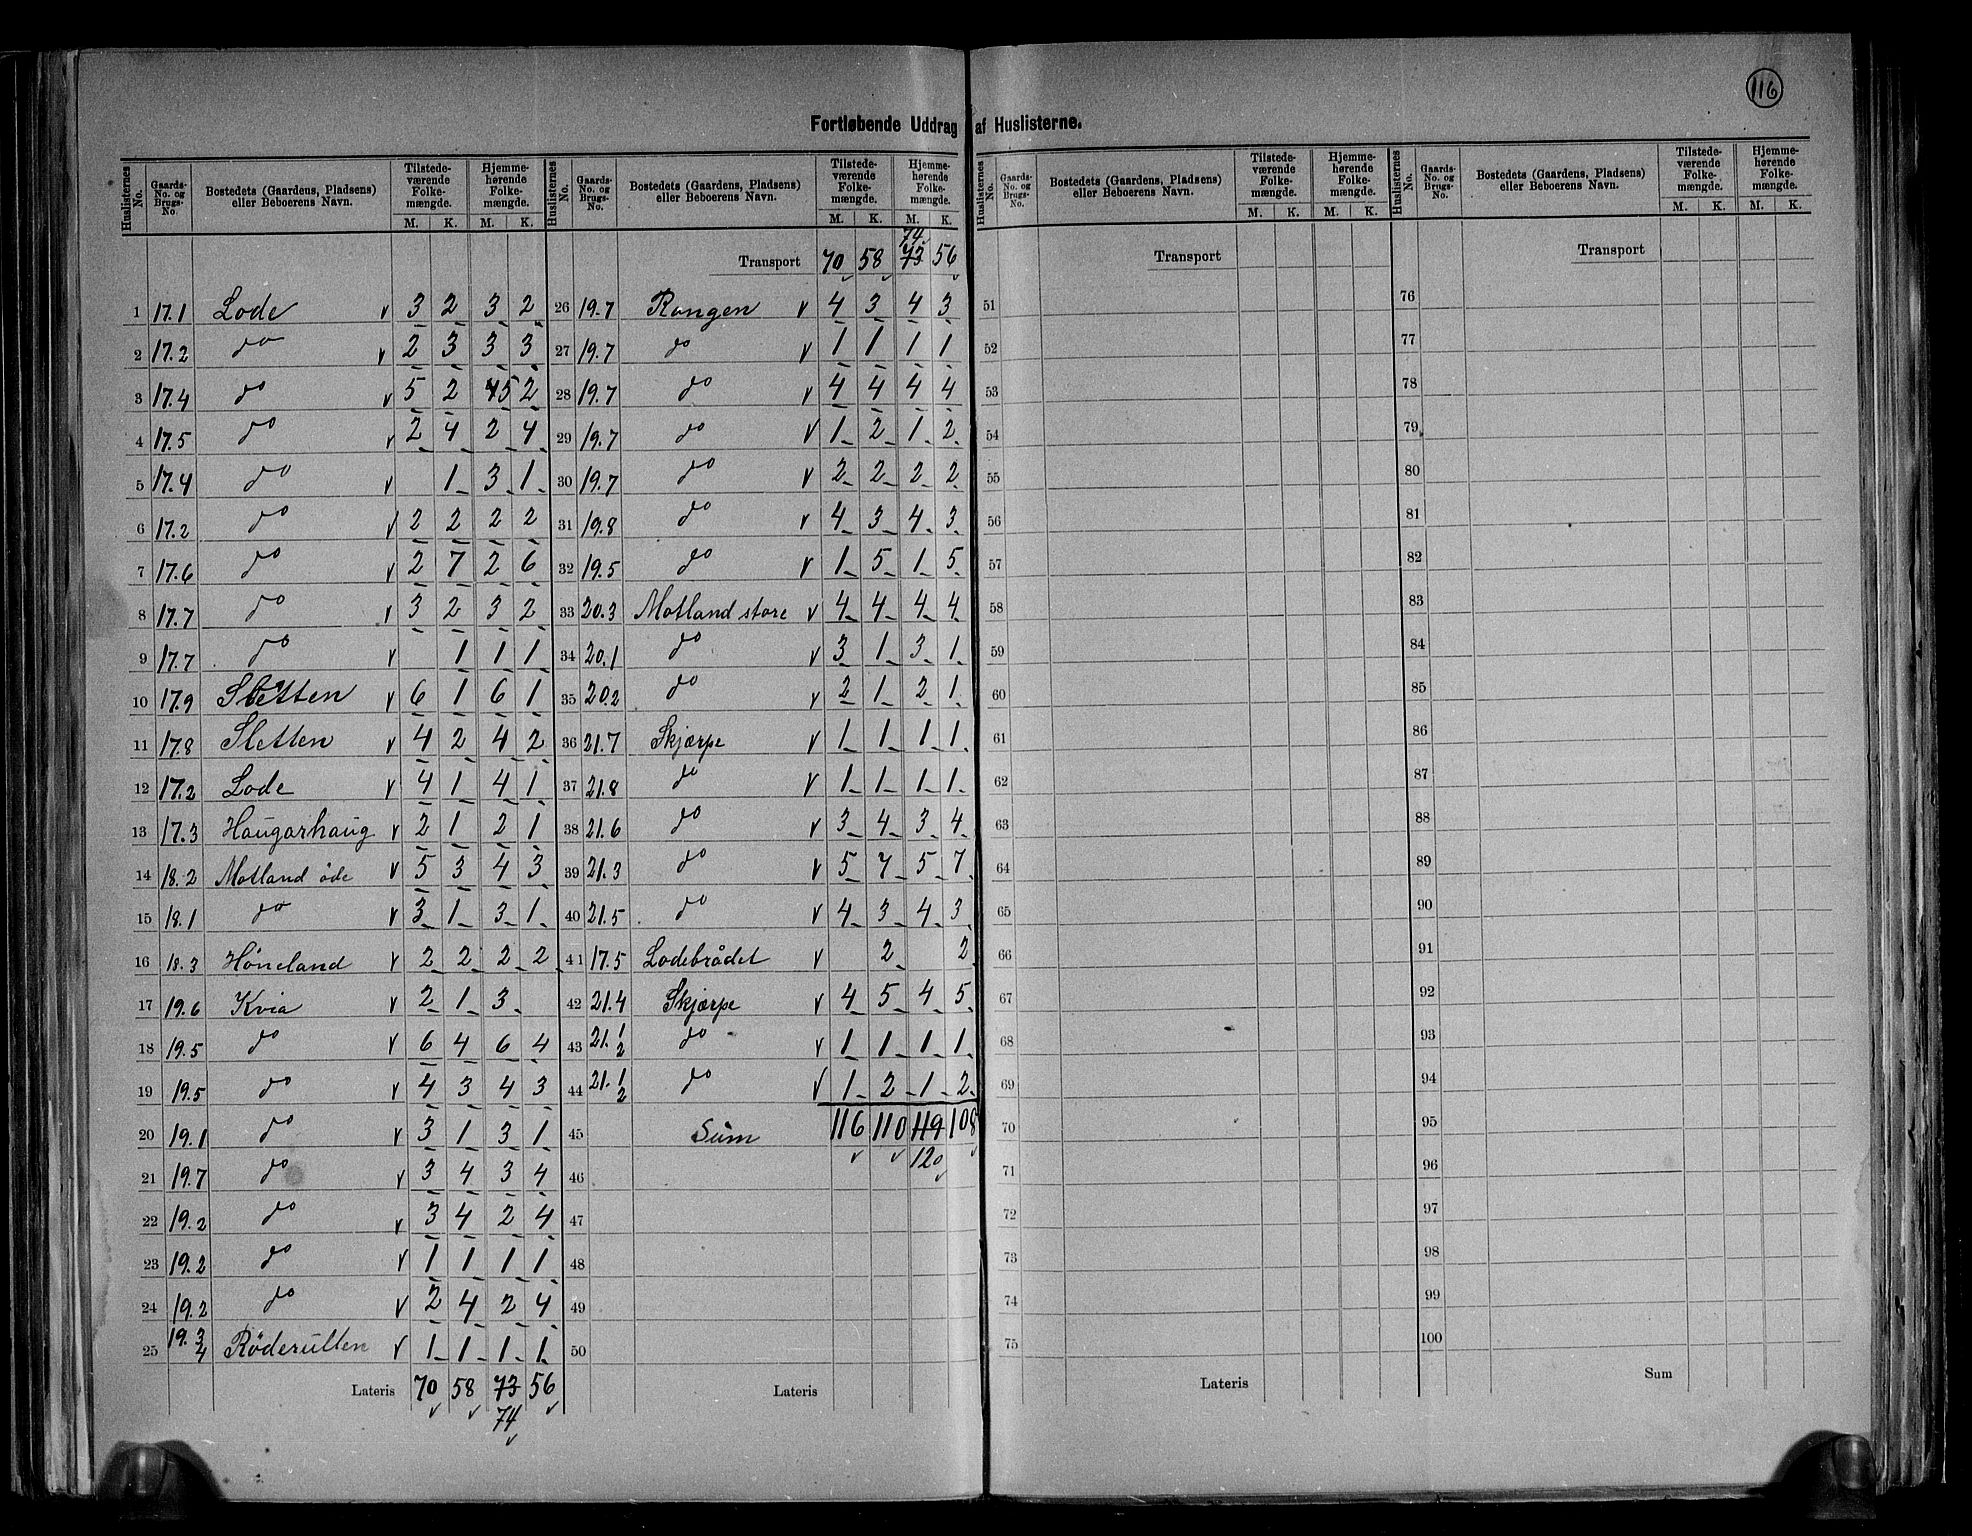 116
Fortløbende Uddrag af Huslisterne.
Huslisternes No. | Gaards-No. og Brugs-No. | Bostedets (Gaardens, Pladsens) eller Beboerens Navn. | Tilstedeværende Folkemængde. M. K. | Hjemmehørende Folkemængde. M. K.
1 17.1 Lode v 3 2 3 2
2 17.2 do v 2 3 3 3
3 17.4 do v 5 2 4 5 2
4 17.5 do v 2 4 2 4
5 17.4 do v 1 3 1
6 17.2 do v 2 2 2 2
7 17.6 do v 2 7 2 6
8 17.7 do v 3 2 3 2
9 17.7 do v 1 1 1
10 17.9 Sletten v 6 1 6 1
11 17.8 Sletten v 4 2 4 2
12 17.2 Lode v 4 1 4 1
13 17.3 Haugarhaug v 2 1 2 1
14 18.2 Motland öde v 5 3 4 3
15 18.1 do v 3 1 3 1
16 18.3 Höneland v 2 2 2 2
17 19.6 Kvia v 2 1 3
18 19.5 do v 6 4 6 4
19 19.5 do v 4 3 4 3
20 19.1 do v 3 1 3 1
21 19.7 do v 3 4 3 4
22 19.2 do v 3 4 2 4
23 19.2 do v 1 1 1 1
24 19.2 do v 2 4 2 4
25 19.3/4 Röderullen v 1 1 1 1
Lateris 70 58 73 56
74
Huslisternes No. | Gaards-No. og Brugs-No. | Bostedets (Gaardens, Pladsens) eller Beboerens Navn. | Tilstedeværende Folkemængde. M. K. | Hjemmehørende Folkemængde. M. K.
74
Transport 70 58 73 56
26 19.7 Rangen v 4 3 4 3
27 19.7 do v 1 1 1 1
28 19.7 do v 4 4 4 4
29 19.7 do v 1 2 1 2
30 19.7 do v 2 2 2 2
31 19.8 do v 4 3 4 3
32 19.5 do v 1 5 1 5
33 20.3 Motland store v 4 4 4 4
34 20.1 do v 3 1 3 1
35 20.2 do v 2 1 2 1
36 21.7 Skjærpe v 1 1 1 1
37 21.8 do v 1 1 1 1
38 21.6 do v 3 4 3 4
39 21.3 do v 5 7 5 7
40 21.5 do v 4 3 4 3
41 17.5 Lodebrådet v 2 2
42 21.4 Skjærpe v 4 5 4 5
43 21.1/2 do v 1 1 1 1
44 21.1/2 do v 1 2 1 2
45 Sum 116 110 119 108
46 120
47
48
49
50
Lateris
Huslisternes No. | Gaards-No. og Brugs-No. | Bostedets (Gaardens, Pladsens) eller Beboerens Navn. | Tilstedeværende Folkemængde. M. K. | Hjemmehørende Folkemængde. M. K.
Transport
51
52
53
54
55
56
57
58
59
60
61
62
63
64
65
66
67
68
69
70
71
72
73
74
75
Lateris
Huslisternes No. | Gaards-No. og Brugs-No. | Bostedets (Gaardens, Pladsens) eller Beboerens Navn. | Tilstedeværende Folkemængde. M. K. | Hjemmehørende Folkemængde. M. K.
Transport
76
77
78
79
80
81
82
83
84
85
86
87
88
89
90
91
92
93
94
95
96
97
98
99
100
Sum